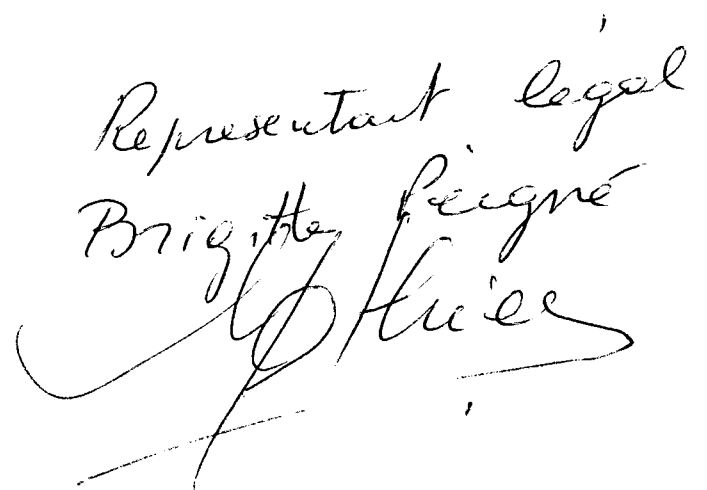 Representant légal
Brigitte Peigné